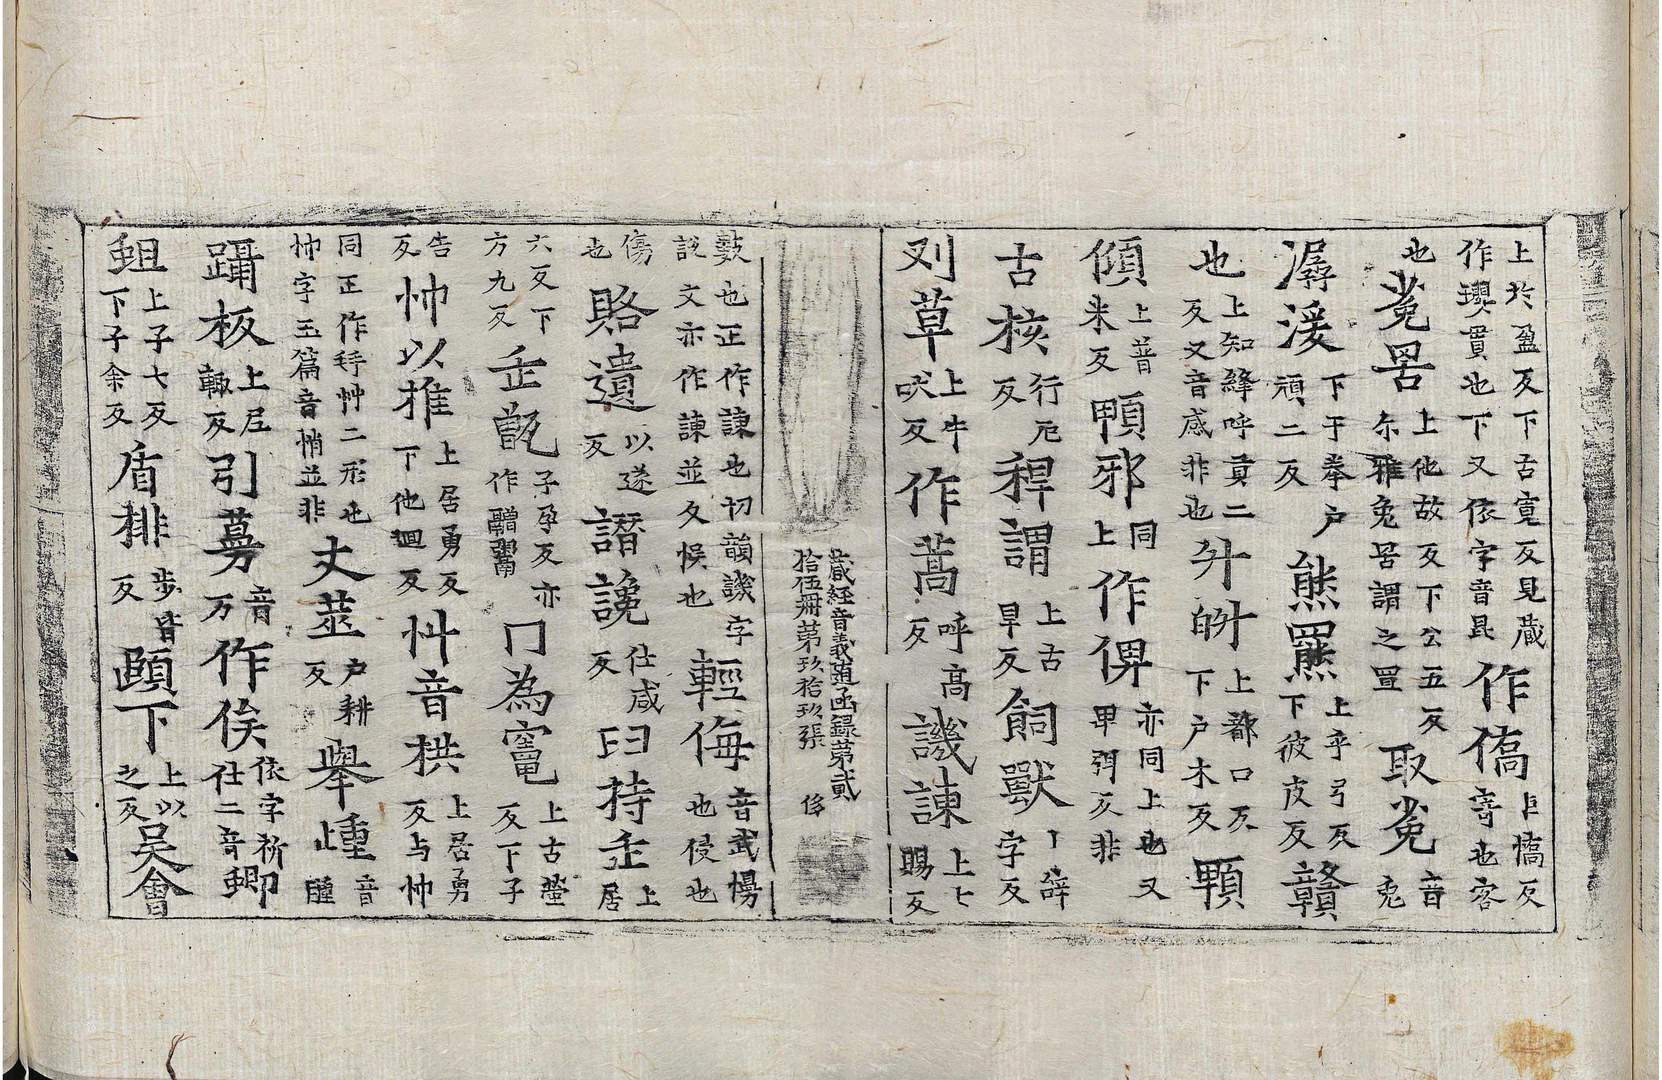 上扵盈反下古寛反見蔵
作瓔貫也下又依字音毘作僑上憍反寄也客
也菟罟上他故反下公五反尔雅兔罟謂之罝取菟音兎
潺湲下于拳户頑二反熊羆上乎弓反下彼皮反贛
也上知絳呼貢二反又音感非也外晒上都口反下户木反顆
傾上普米反頓邪同上作俾亦同上也又畢弭反非
古核行厄反稈謂上古旱反飼獸上辝字反
刈草上牛吠反作蒿呼高反譏諫上七賜反
蔵経音義随函録第貳
拾伍册第玖拾玖張 侈
數也正作諫也切韻譏字
説文亦作諫並久悮也輕侮音武慢也侵也
傷也賂遺以遂反譖讒仕咸反曰持缶上居
六反下方九反缶甑子孕反亦作䰝鬻冂為竃上古螢反下子
告反帥以推上居勇反下他迴反艸音栱上居勇反与帥
同正作𠬞艸二形也帥字玉篇音悄並非丈莖户耕反舉踵音腫
躡板上尼輙反引蔓音万作俟依字祈仕二音螂
蛆上子七反下子余反盾排步皆反頤下上以之反吴會